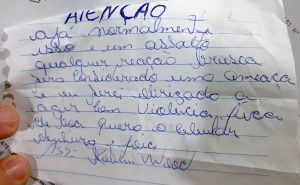 ATENÇÃO
ajá normalmente
isso é um assalto
qualquer reação brusca
sera considerado uma ameaça
e eu serei obrigado a
agir com violência, fica
de boa quero o celular
dinheiro e foi
Ass: